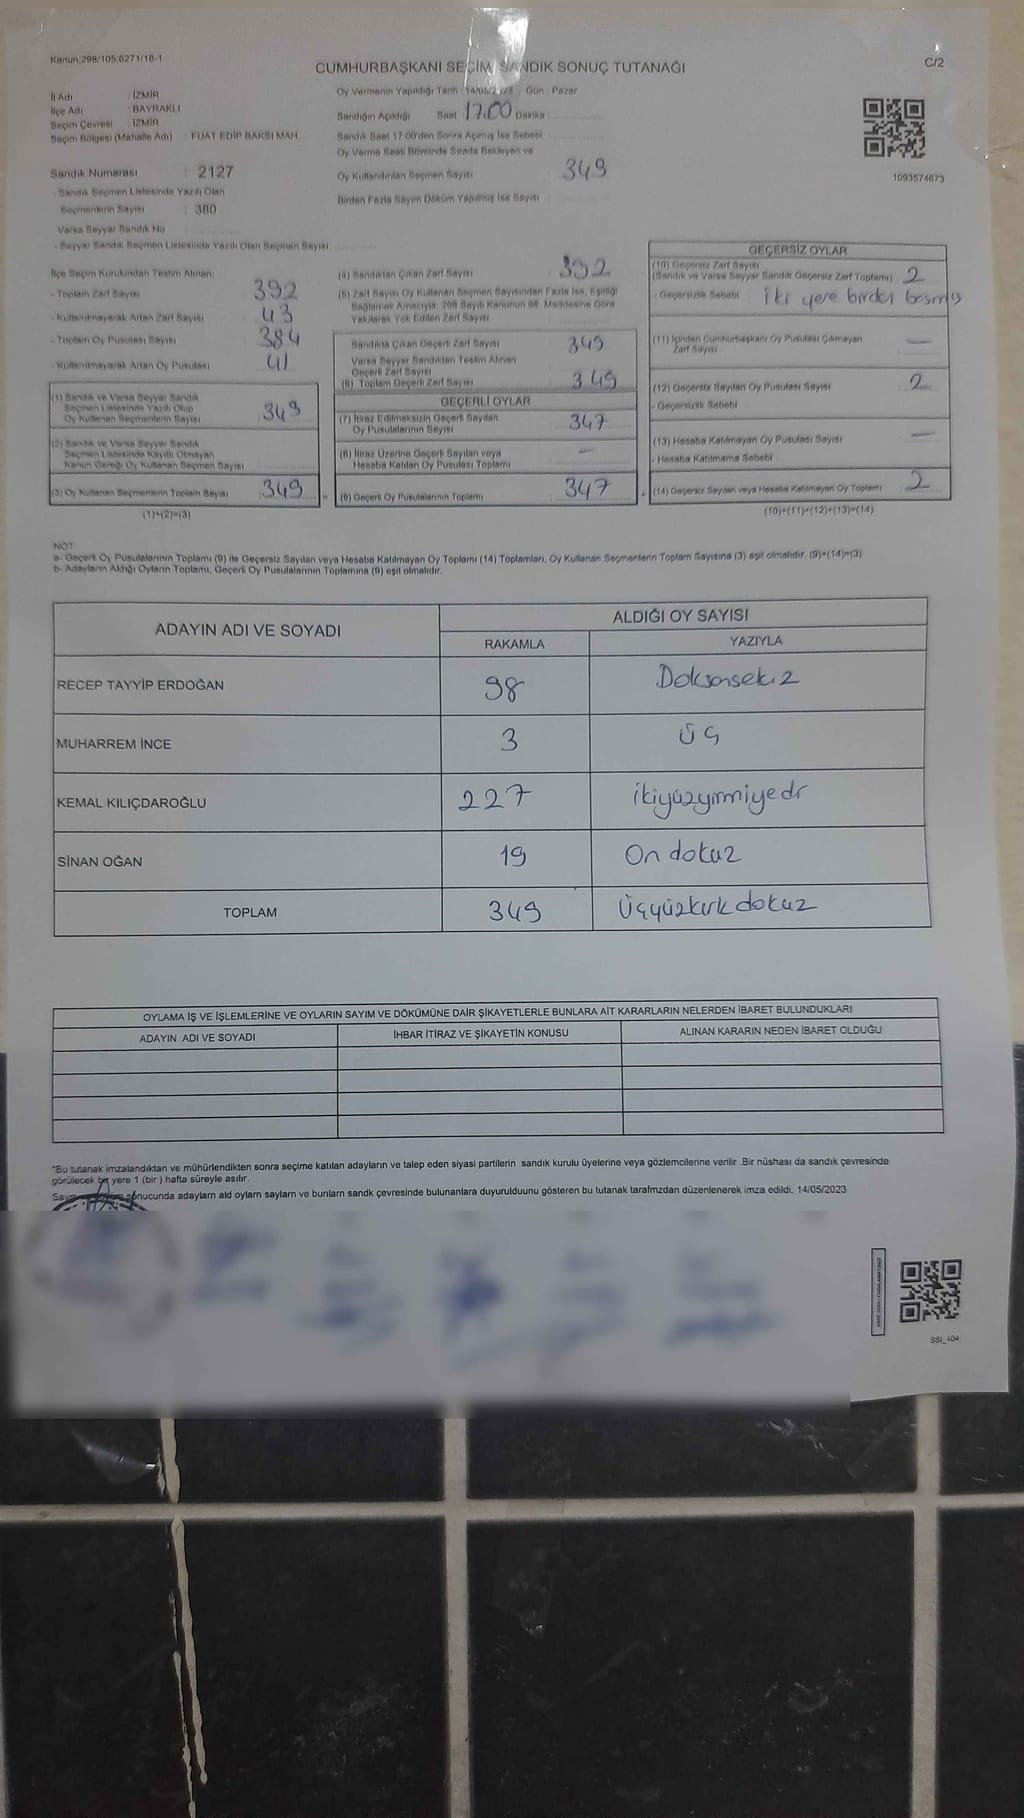 Kanun;298/105;6271/18-1
CUMHURBAŞKANI SEÇİM SANDIK SONUÇ TUTANAĞI
C/2
İl Adı : İZMİR
İlçe Adı : BAYRAKLI
Seçim Çevresi : İZMİR
Seçim Bölgesi (Mahalle Adı) : FUAT EDİP BAKSI MAH.
Sandık Numarası : 2127
- Sandık Seçmen Listesinde Yazılı Olan
Seçmenlerin Sayısı : 380
Varsa Seyyar Sandık No
- Seyyar Sandık Seçmen Listesinde Yazılı Olan Seçmen Sayısı
Oy Vermenin Yapıldığı Tarih : 14/05/2023 Gün : Pazar
Sandığın Açıldığı Saat 17.00 Dakika
Sandık Saat 17:00'den Sonra Açılmış İse Sebebi
Oy Verme Saati Bitiminde Sırada Bekleyen ve
Oy Kullandırılan Seçmen Sayısı : 349
Birden Fazla Sayım Döküm Yapılmış İse Sayısı :
1093574673
İlçe Seçim Kurulundan Teslim Alınan;
- Toplam Zarf Sayısı 392
- Kullanılmayarak Artan Zarf Sayısı 43
- Toplam Oy Pusulası Sayısı 384
- Kullanılmayarak Artan Oy Pusulası 41
(1) Sandık ve Varsa Seyyar Sandık
Seçmen Listesinde Yazılı Olup
Oy Kullanan Seçmenlerin Sayısı 349
(2) Sandık ve Varsa Seyyar Sandık
Seçmen Listesinde Kayıtlı Olmayan
Kanun Gereği Oy Kullanan Seçmen Sayısı
(3) Oy Kullanan Seçmenlerin Toplam Sayısı 349
(1)+(2)=(3)
(4) Sandıktan Çıkan Zarf Sayısı 392
(5) Zarf Sayısı Oy Kullanan Seçmen Sayısından Fazla İse, Eşitliği
Sağlamak Amacıyla, 298 Sayılı Kanunun 98. Maddesine Göre
Yakılarak Yok Edilen Zarf Sayısı
Sandıkta Çıkan Geçerli Zarf Sayısı 349
Varsa Seyyar Sandıktan Teslim Alınan
Geçerli Zarf Sayısı
(6) Toplam Geçerli Zarf Sayısı 349
GEÇERLİ OYLAR
(7) İtiraz Edilmeksizin Geçerli Sayılan
Oy Pusulalarının Sayısı 347
(8) İtiraz Üzerine Geçerli Sayılan veya
Hesaba Katılan Oy Pusulası Toplamı —
(9) Geçerli Oy Pusulalarının Toplamı 347
GEÇERSİZ OYLAR
(10) Geçersiz Zarf Sayısı
(Sandık ve Varsa Seyyar Sandık Geçersiz Zarf Toplamı) 2
- Geçersizlik Sebebi : iki yere birden basmış
(11) İçinden Cumhurbaşkanı Oy Pusulası Çıkmayan
Zarf Sayısı —
(12) Geçersiz Sayılan Oy Pusulası Sayısı 2
- Geçersizlik Sebebi
(13) Hesaba Katılmayan Oy Pusulası Sayısı —
- Hesaba Katılmama Sebebi
(14) Geçersiz Sayılan veya Hesaba Katılmayan Oy Toplamı 2
(10)+(11)+(12)+(13)=(14)
NOT:
a- Geçerli Oy Pusulalarının Toplamı (9) ile Geçersiz Sayılan veya Hesaba Katılmayan Oy Toplamı (14) Toplamları, Oy Kullanan Seçmenlerin Toplam Sayısına (3) eşit olmalıdır. (9)+(14)=(3)
b- Adayların Aldığı Oyların Toplamı, Geçerli Oy Pusulalarının Toplamına (9) eşit olmalıdır.
ADAYIN ADI VE SOYADI
ALDIĞI OY SAYISI
RAKAMLA YAZIYLA
RECEP TAYYİP ERDOĞAN 98 Doksansekiz
MUHARREM İNCE 3 üç
KEMAL KILIÇDAROĞLU 227 ikiyüzyirmiyedi
SİNAN OĞAN 19 On dokuz
TOPLAM 349 Üçyüzkırk dokuz
OYLAMA İŞ VE İŞLEMLERİNE VE OYLARIN SAYIM VE DÖKÜMÜNE DAİR ŞİKAYETLERLE BUNLARA AİT KARARLARIN NELERDEN İBARET BULUNDUKLARI
ADAYIN ADI VE SOYADI
İHBAR İTİRAZ VE ŞİKAYETİN KONUSU
ALINAN KARARIN NEDEN İBARET OLDUĞU
*Bu tutanak imzalandıktan ve mühürlendikten sonra seçime katılan adayların ve talep eden siyasi partilerin sandık kurulu üyelerine veya gözlemcilerine verilir .Bir nüshası da sandık çevresinde
görülecek bir yere 1 (bir ) hafta süreyle asılır.
sonucunda adayların ald oylarn saylarn ve bunlarn sandk çevresinde bulunanlara duyurulduunu gösteren bu tutanak tarafmzdan düzenlenerek imza edildi. 14/05/2023
SSI_404